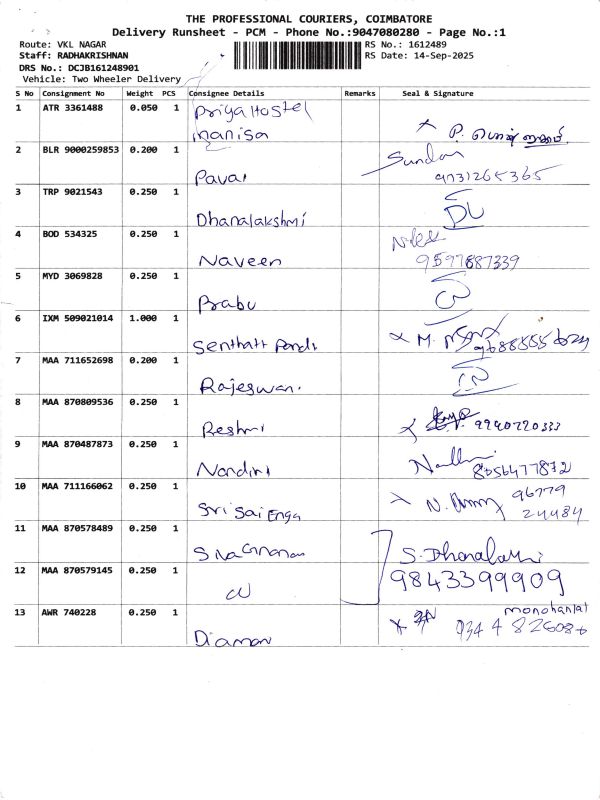 THE PROFESSIONAL COURIERS, COIMBATORE
Delivery Runsheet - PCM - Phone No.:9047080280 - Page No.:1
Route: VKL NAGAR RS No.: 1612489
Staff: RADHAKRISHNAN RS Date: 14-Sep-2025
DRS No.: DCJB161248901
Vehicle: Two Wheeler Delivery
S No Consignment No Weight PCS Consignee Details Remarks Seal & Signature
1 ATR 3361488 0.050 1 Priya Hostel
manisa
2 BLR 9000259853 0.200 1 Sundar
Pavai 9731265365
3 TRP 9021543 0.250 1
Dhanalakshmi
4 BOD 534325 0.250 1
Naveen 9597887339
5 MYD 3069828 0.250 1
Prabu
6 IXM 509021014 1.000 1
Senthatt M.
7 MAA 711652698 0.200 1
Rajeswari
8 MAA 870809536 0.250 1
Reshmi
9 MAA 870487873 0.250 1
Nandini 8056477872
10 MAA 711166062 0.250 1 N. 96779
Sri Sai Enga 24484
11 MAA 870578489 0.250 1
S. Dhanalakshmi
12 MAA 870579145 0.250 1 9843399909
13 AWR 740228 0.250 1 manoharlal
Diaman